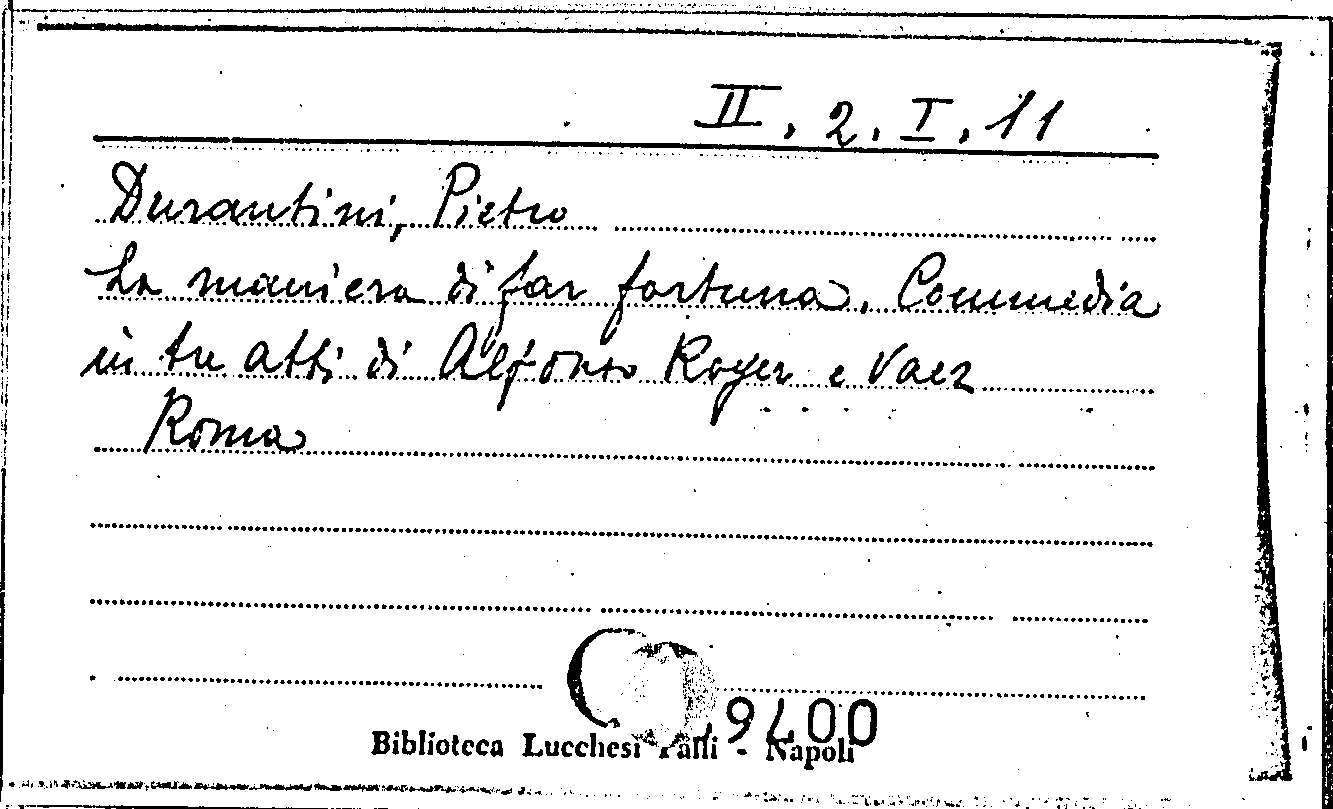 II. 2. I. 11
Durantini, Pietro
La maniera di far fortuna. Commedia
in tre atti di Alfonso Royer e Vaez
Roma
0076
Biblioteca Lucchesi Palli - Napoli